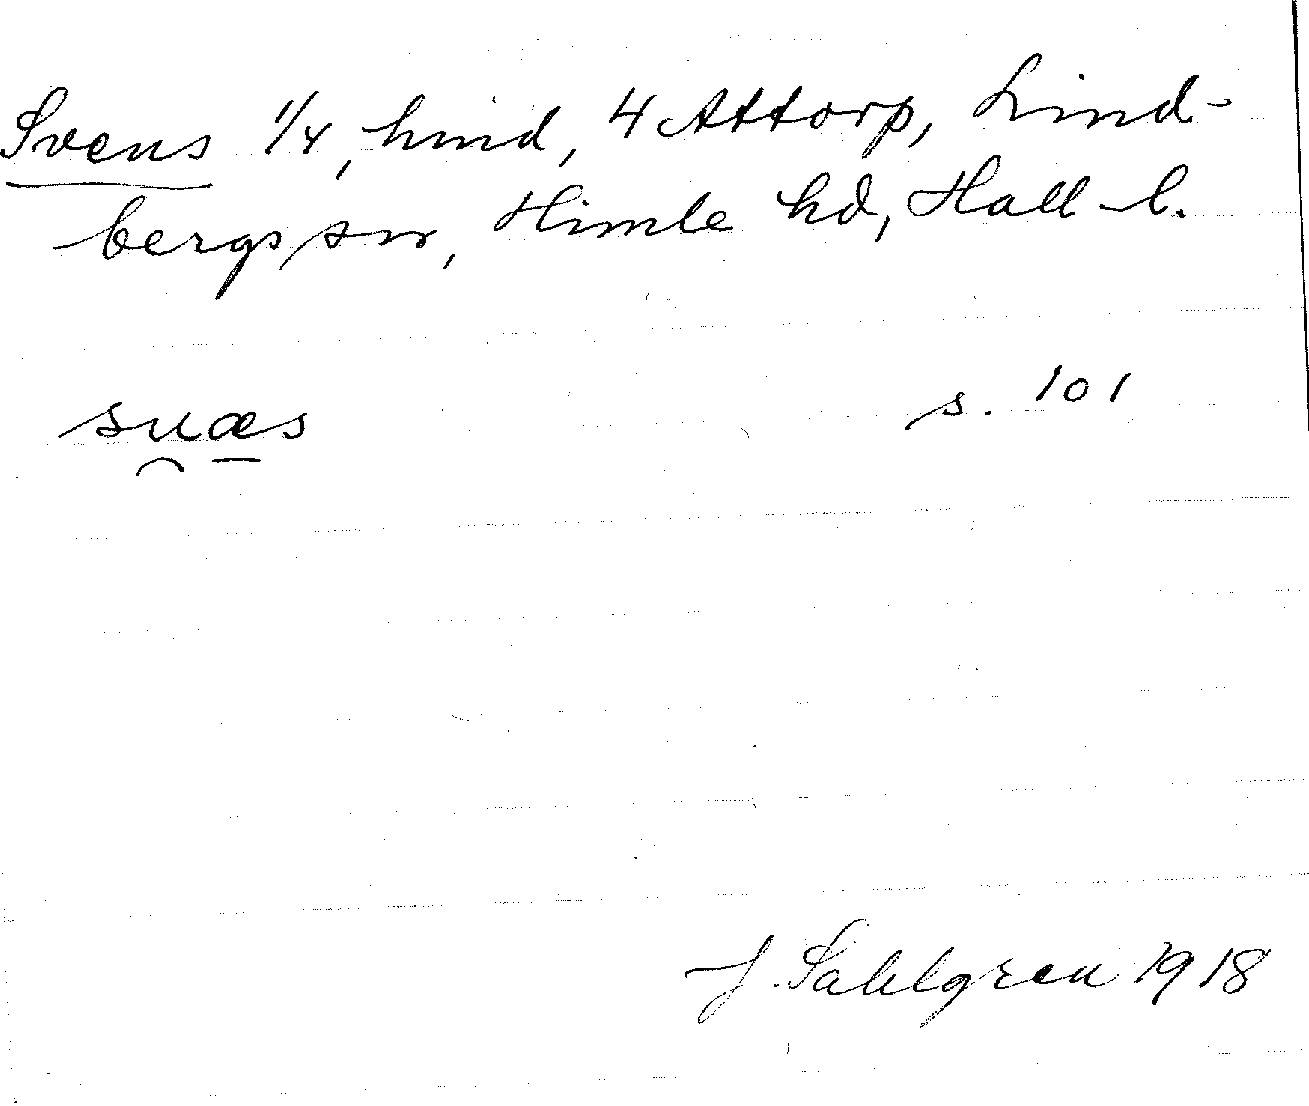 Svens 1/4, hmd, 4 Attorp, Lind-
bergs sn, Himle hd, Hall-l.
suæs s. 101
J. Sahlgren 1918